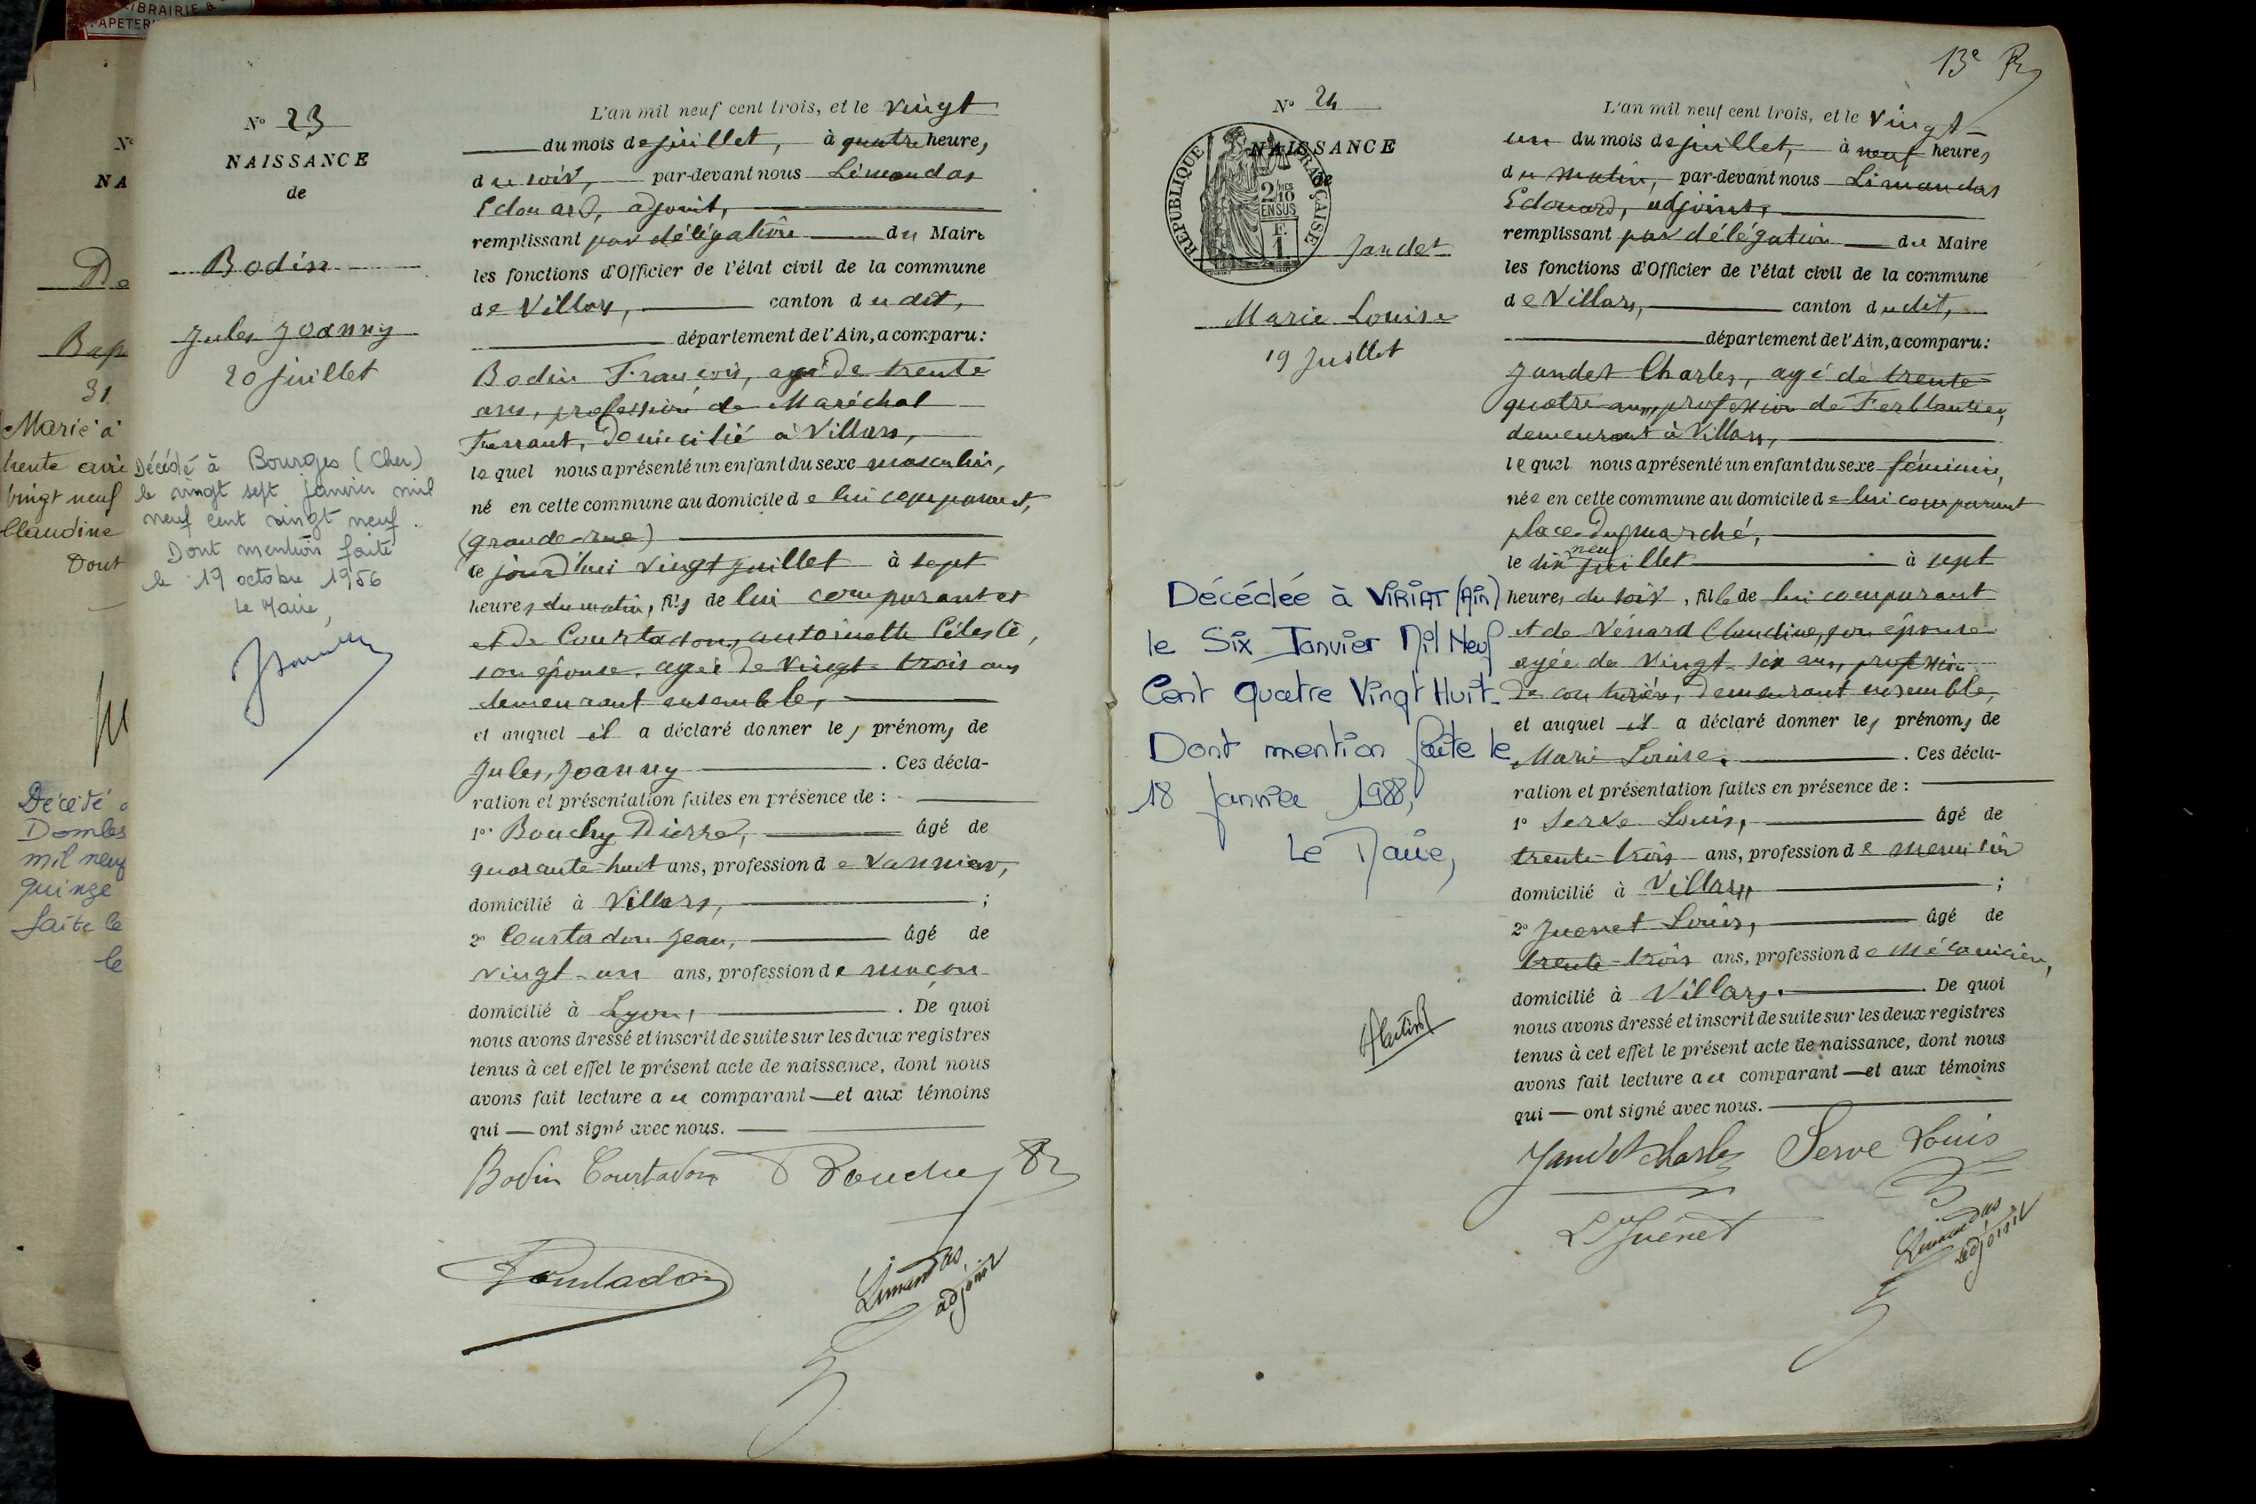 LIBRAIRIE &
PAPETERI
N°
NA
Bap
31
Marié à
trente
vingt neuf
Claudine
Dont
Décédé
Dombes
mil neuf
quinze
faite le
le
N° 23
NAISSANCE
de
Bodin
Jules Joanny
20 Juillet
Décédé à Bourges (Cher)
le vingt sept Janvier mil
neuf cent vingt neuf.
Dont mention faite
le 19 octobre 1956
Le Maire,
L'an mil neuf cent trois, et le vingt
du mois de juillet, à quatre heures,
du soir, par-devant nous Limandas
Edouard, adjoint,
remplissant par délégation du Maire
les fonctions d'Officier de l'état civil de la commune
de Villars, canton dudit,
département de l'Ain, a comparu:
Bodin François, agé de trente
ans, profession de Maréchal
Ferrant, domicilié à Villars,
lequel nous a présenté un enfant du sexe masculin,
né en cette commune au domicile de lui comparant,
(grande rue)
le jourd'hui vingt juillet à sept
heures du matin, fils de lui comparant et
et de Courtadon, antoinette Céleste,
son épouse, agée de vingt-trois ans
demeurant ensemble,
et auquel il a déclaré donner les prénoms de
Jules, Joanny. Ces décla-
ration et présentation faites en présence de :
1° Bouchy Pierre, âgé de
quarante-huit ans, profession de vannier,
domicilié à Villars, ;
2° Courtadon Jean, âgé de
vingt-un ans, profession de maçon
domicilié à Lyon, . De quoi
nous avons dressé et inscrit de suite sur les deux registres
tenus à cet effet le présent acte de naissance, dont nous
avons fait lecture au comparant — et aux témoins
qui — ont signé avec nous.
Bodin Courtadon Bouchy
Courtadon
Limandas
adjoint
13e
N° 24
NAISSANCE
de
REPUBLIQUE FRANÇAISE
2/10
EN SUS
F.
1.
Jandet
Marie Louise
19 Juillet
Décédée à VIRIAT (Ain)
le Six Janvier Mil Neuf
Cent Quatre Vingt Huit.
Dont mention faite le
18 Janvier 1988,
Le Maire,
L'an mil neuf cent trois, et le vingt-
un du mois de juillet, à neuf heures
du matin, par-devant nous Limandas
Edouard, adjoint,
remplissant par délégation du Maire
les fonctions d'Officier de l'état civil de la commune
de Villars, canton dudit,
département de l'Ain, a comparu:
Jandet Charles, agé de trente
quatre ans, profession de Ferblantier,
demeurant à Villars,
lequel nous a présenté un enfant du sexe féminin,
née en cette commune au domicile de lui comparant
place du marché,
le dix neuf juillet à sept
heures du soir, fille de lui comparant
et de Vénard Claudine, son épouse
agée de vingt-six ans, profession
de couturière, demeurant ensemble,
et auquel il a déclaré donner les prénoms de
Marie Louise. . Ces décla-
ration et présentation faites en présence de :
1° Serve Louis, âgé de
trente-trois ans, profession de menuisier
domicilié à Villars, ;
2° Juenet Louis, âgé de
trente-trois ans, profession de Mécanicien,
domicilié à Villars. . De quoi
nous avons dressé et inscrit de suite sur les deux registres
tenus à cet effet le présent acte de naissance, dont nous
avons fait lecture au comparant — et aux témoins
qui — ont signé avec nous.
Jandet Charles Serve Louis
L Juénet
Limandas
adjoint